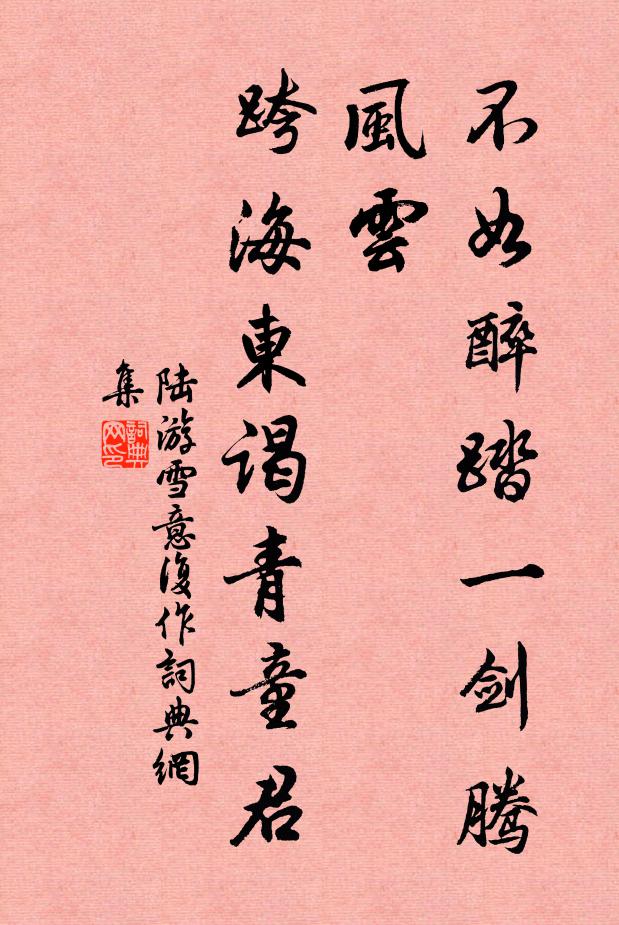 不如醉踏一剑腾
風雲
跨海東谒青童君
陆游雪意復作詞典網
集
詞典网印